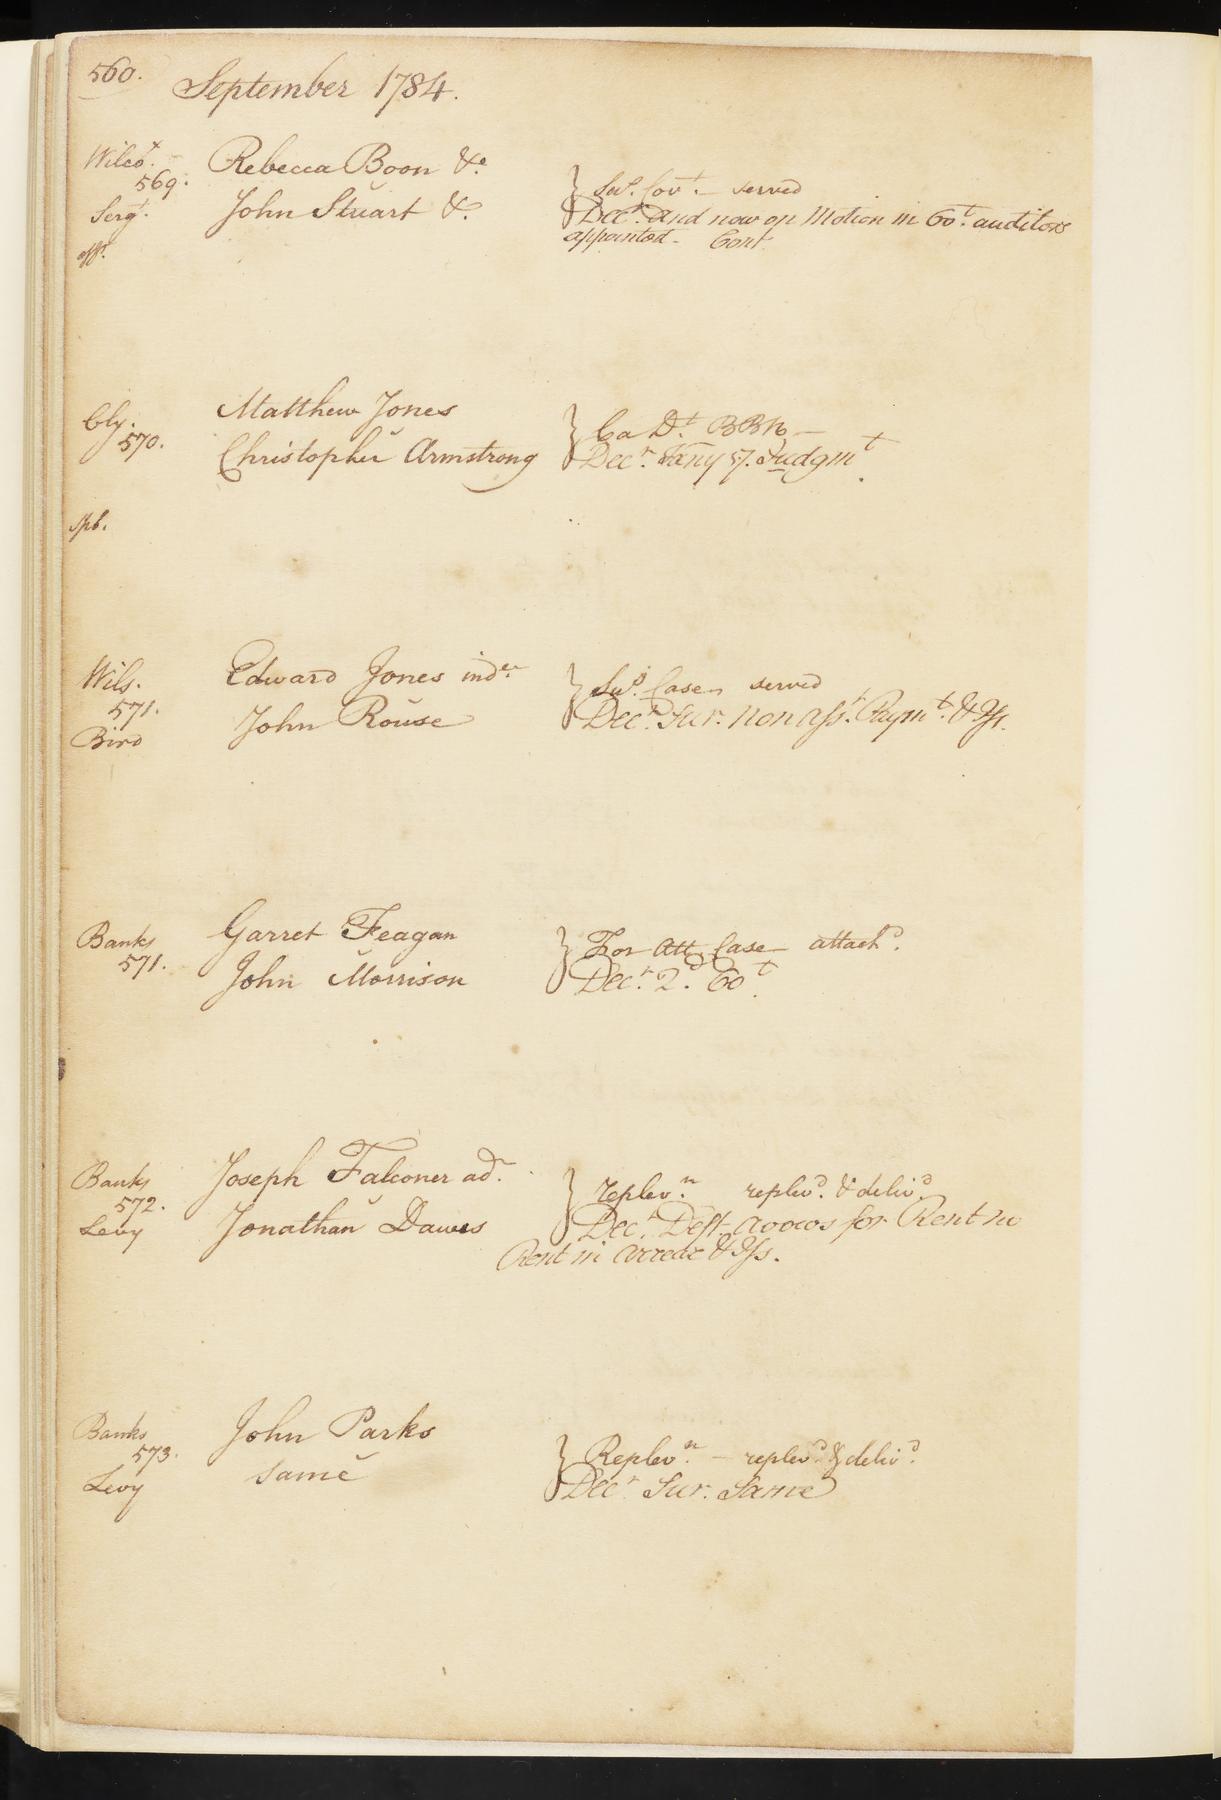 560. September 1784.
Wilcox. Rebecca Boon &c.
569.
Serg.t John Stuart &.
} Su.s Cov.t — served
Dec.r And now on Motion in Co.t auditors
appointed - Cont.
off.
Cly. Matthew Jones
570.
Christopher Armstrong
} Ca D.t BB No —
Dec.r Jany 7. Judgm.t
spb.
Wils. Edward Jones ind.ee
571.
Bird John Rouse
} Su.s Case served
Dec.r Sur. non ass.t Paym.t & Iss.
Banks Garret Feagan
571.
John Morrison
} For Att Case attach.d
Dec.r 2.d Co.t
Banks Joseph Falconer ad.r
572.
Levy Jonathan Dawes
} replev.n replev.d & deliv.d
Dec.r Deft avows for Rent no
Rent in arrear & Iss.
Banks John Parks
573.
Levy same
} Replev.n — replev.d & deliv.d
Dec.r Sur. Same